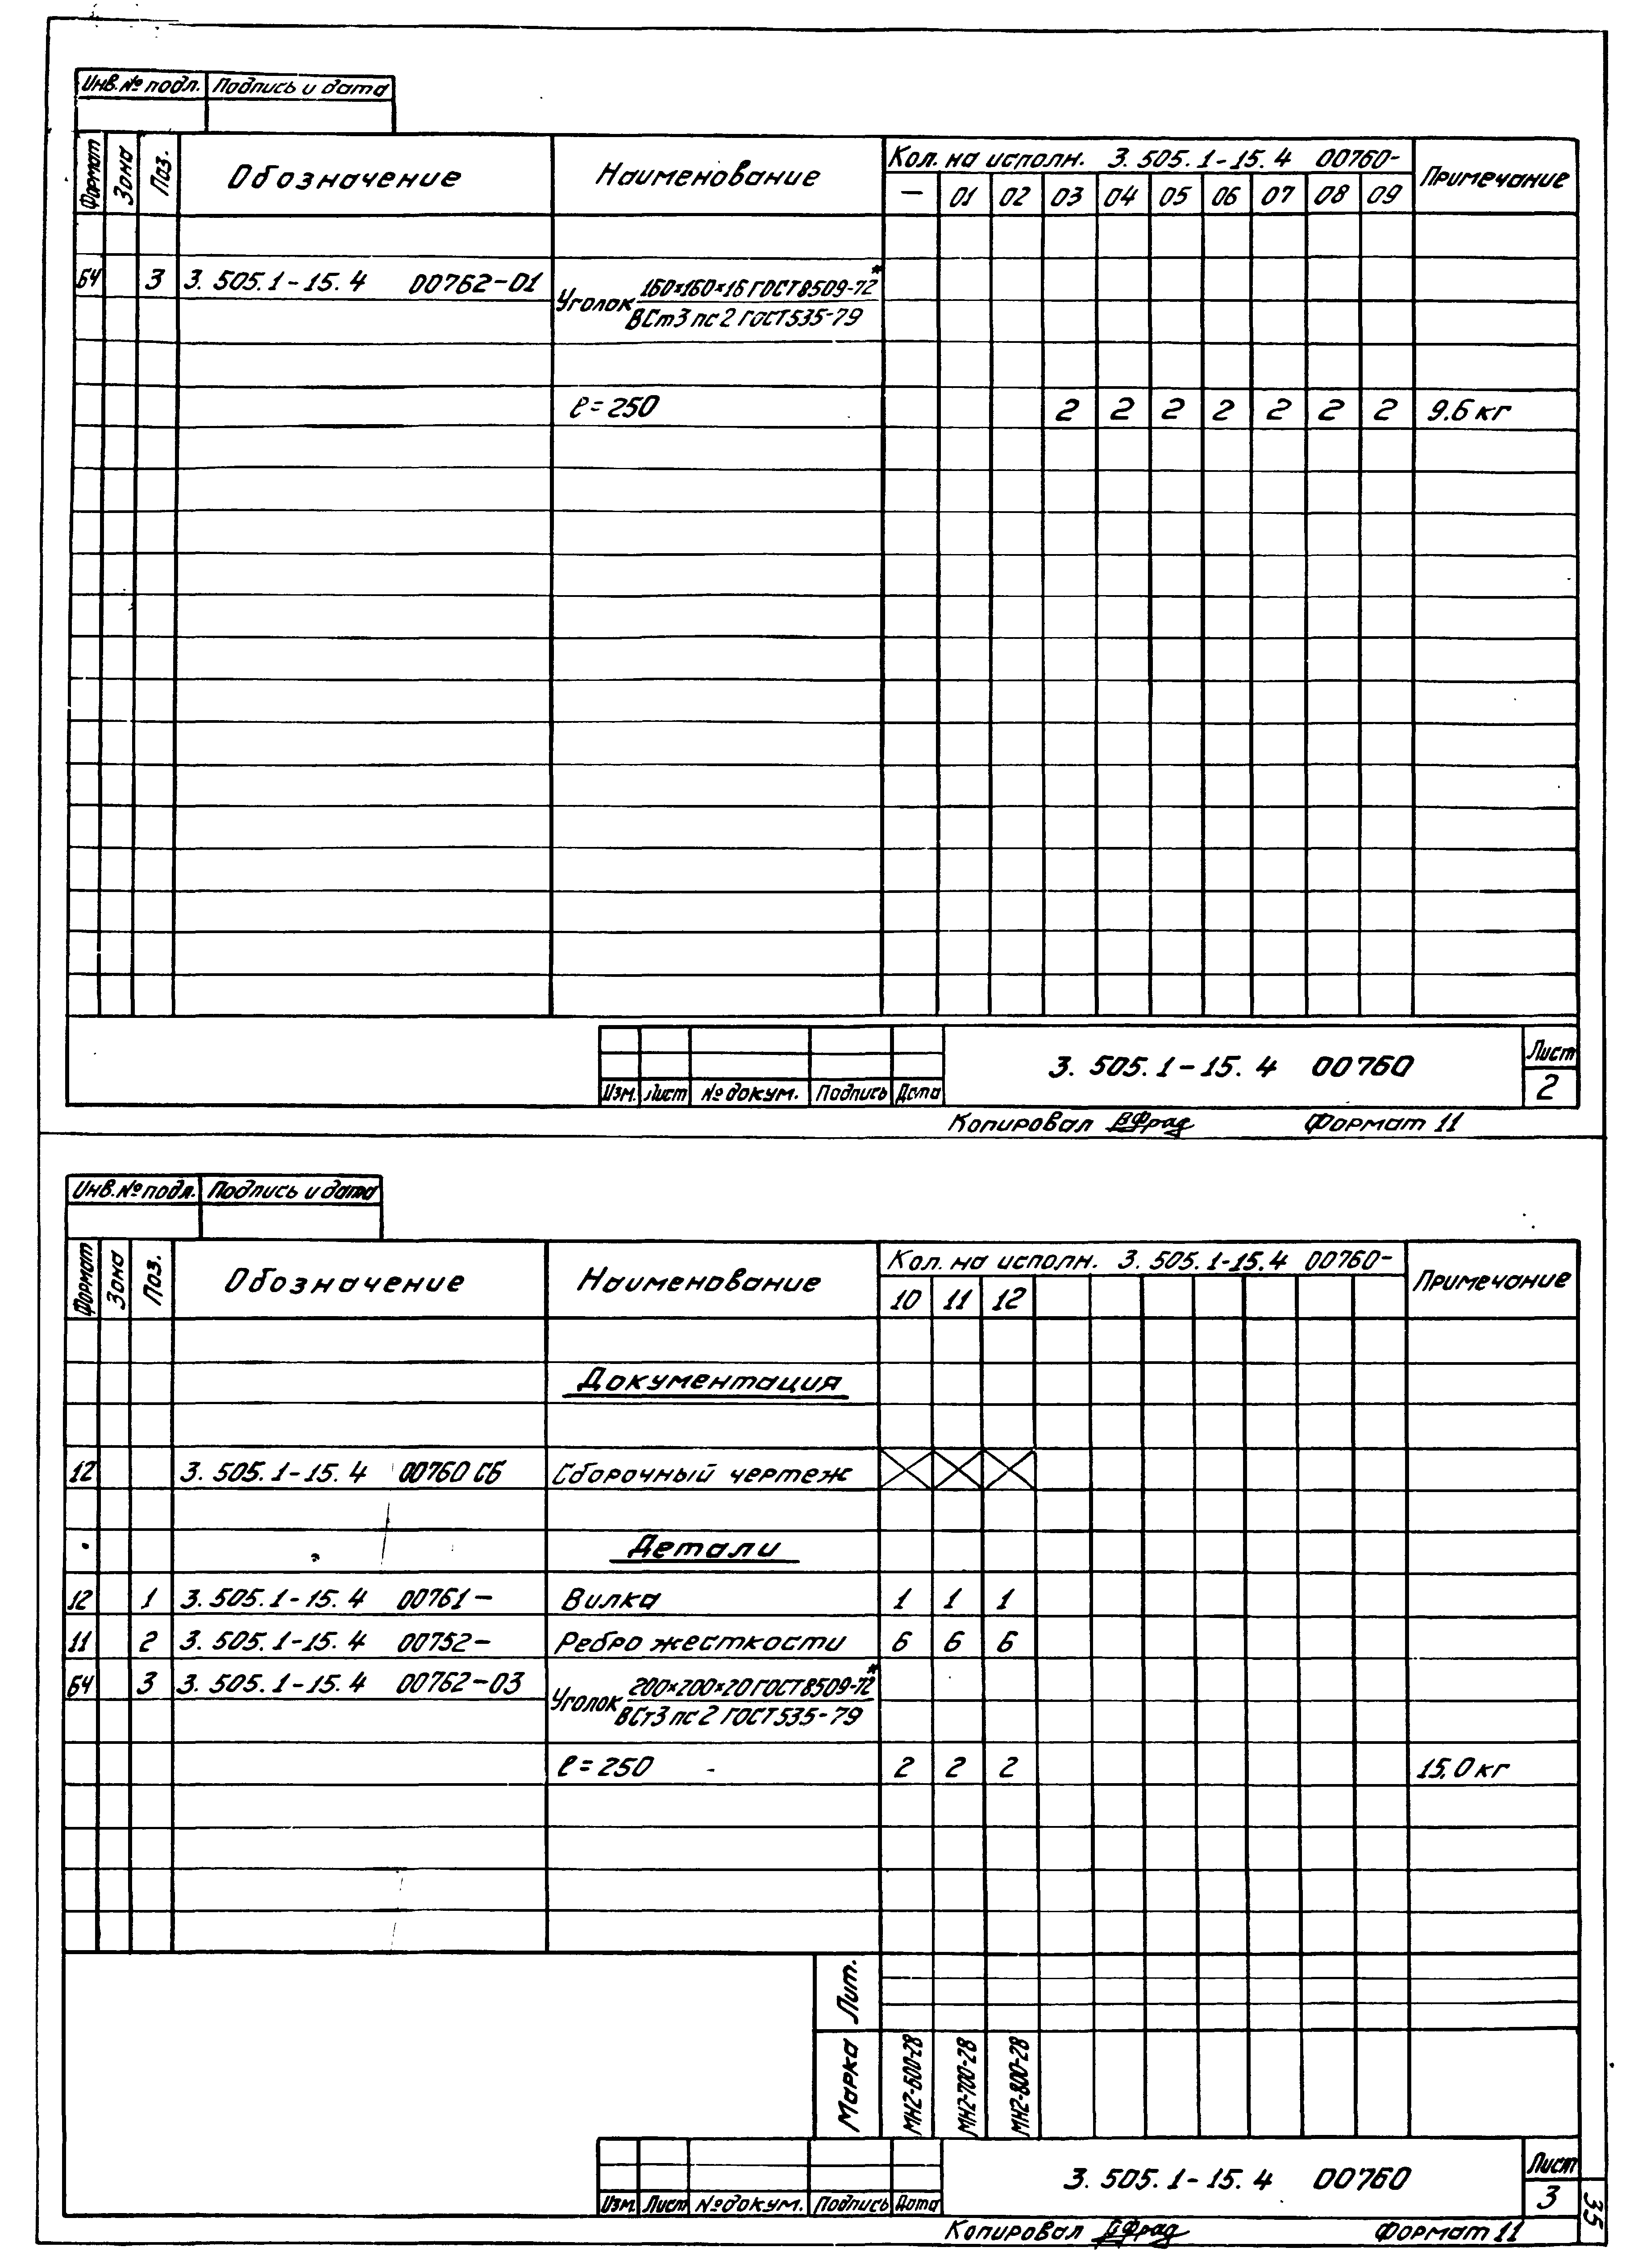 Инв. № подл. Подпись и дата
Формат Зона Поз. Обозначение Наименование Кол. на исполн. 3.505.1-15.4 00760- Примечание
— 01 02 03 04 05 06 07 08 09
БЧ 3 3.505.1-15.4 00762-01 Уголок 160×160×16 ГОСТ 8509-72*
ВСт3пс2 ГОСТ 535-79
ℓ=250 2 2 2 2 2 2 2 9.6 кг
3.505.1-15.4 00760
Лист
2
Изм. Лист № докум. Подпись Дата
Копировал Формат 11
Инв. № подл. Подпись и дата
Формат Зона Поз. Обозначение Наименование Кол. на исполн. 3.505.1-15.4 00760- Примечание
10 11 12
Документация
12 3.505.1-15.4 00760 СБ Сборочный чертеж
Детали
12 1 3.505.1-15.4 00761- Вилка 1 1 1
11 2 3.505.1-15.4 00752- Ребро жесткости 6 6 6
БЧ 3 3.505.1-15.4 00762-03 Уголок 200×200×20 ГОСТ 8509-72*
ВСт3пс2 ГОСТ 535-79
ℓ=250 2 2 2 15.0 кг
Лит.
Марка МН2-600-28 МН2-700-28 МН2-800-28
3.505.1-15.4 00760
Лист
3
Изм. Лист № докум. Подпись Дата
Копировал Формат 11
35